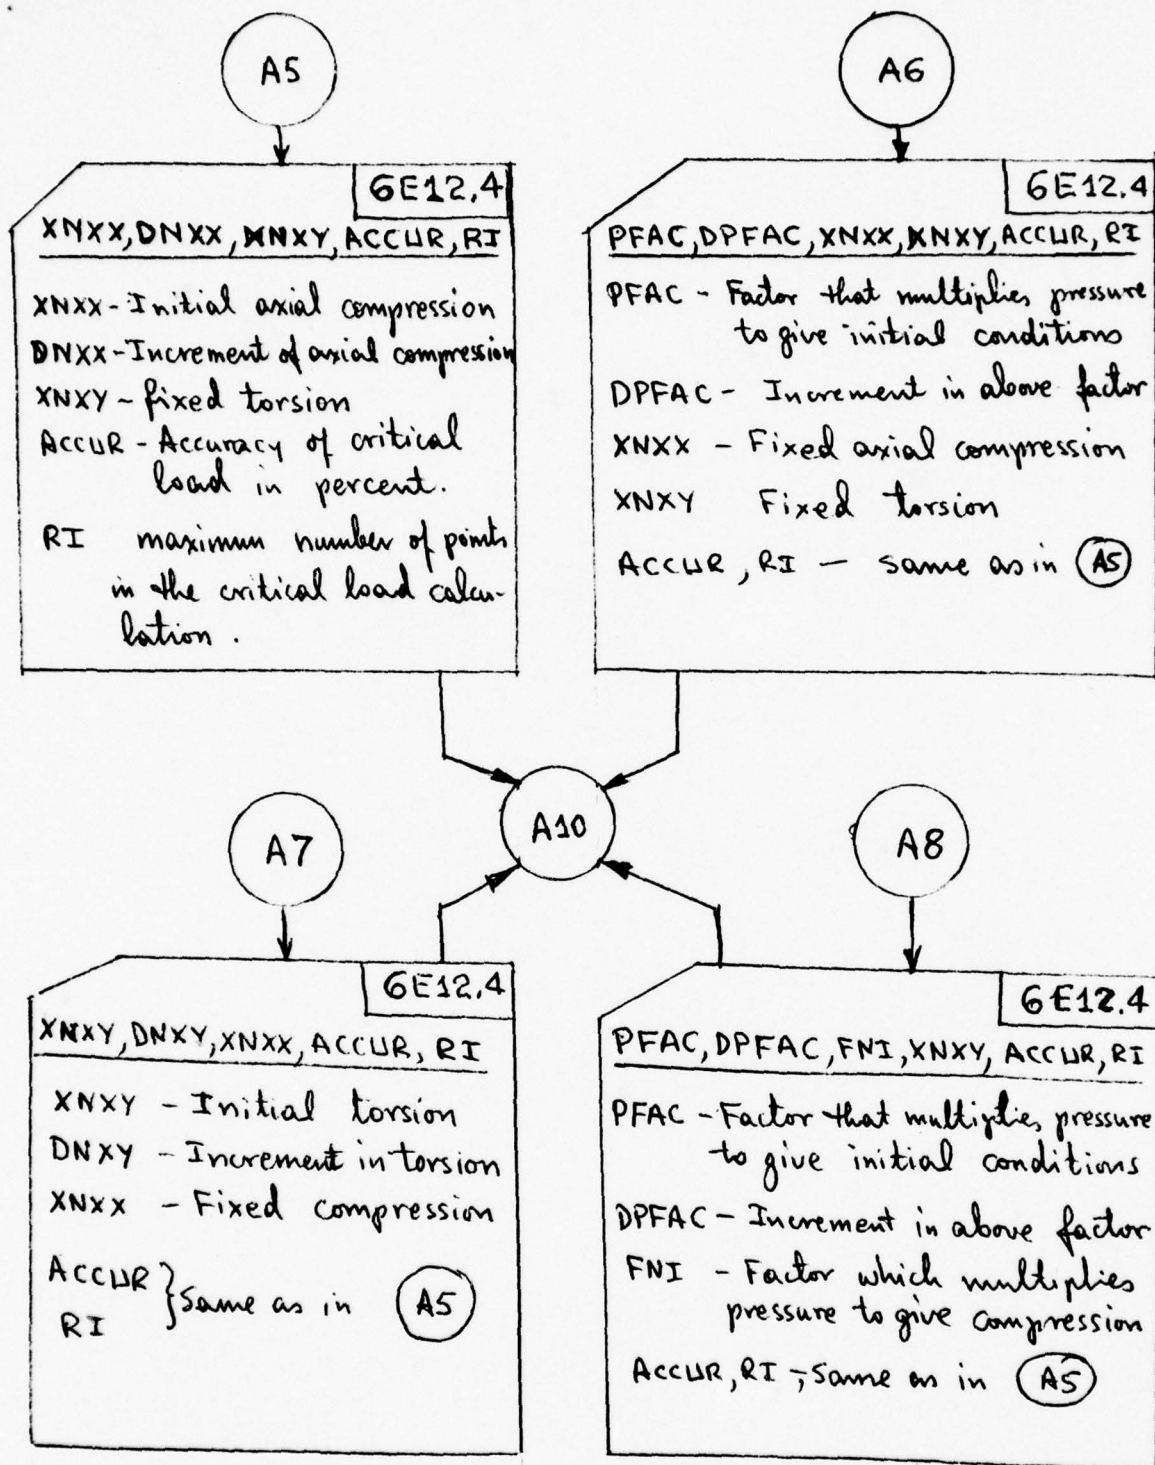 A5
6E12.4
XNXX, DNXX, XNXY, ACCUR, RI
XNXX - Initial axial compression
DNXX - Increment of axial compression
XNXY - fixed torsion
ACCUR - Accuracy of critical
load in percent.
RI maximum number of points
in the critical load calcu-
lation.
A6
6E12.4
PFAC, DPFAC, XNXX, XNXY, ACCUR, RI
PFAC - Factor that multiplies pressure
to give initial conditions
DPFAC - Increment in above factor
XNXX - Fixed axial compression
XNXY Fixed torsion
ACCUR, RI - same as in A5
A10
A7
6E12.4
XNXY, DNXY, XNXX, ACCUR, RI
XNXY - Initial torsion
DNXY - Increment in torsion
XNXX - Fixed compression
ACCUR
RI } Same as in A5
A8
6E12.4
PFAC, DPFAC, FNI, XNXY, ACCUR, RI
PFAC - Factor that multiplies pressure
to give initial conditions
DPFAC - Increment in above factor
FNI - Factor which multiplies
pressure to give compression
ACCUR, RI - Same as in A5